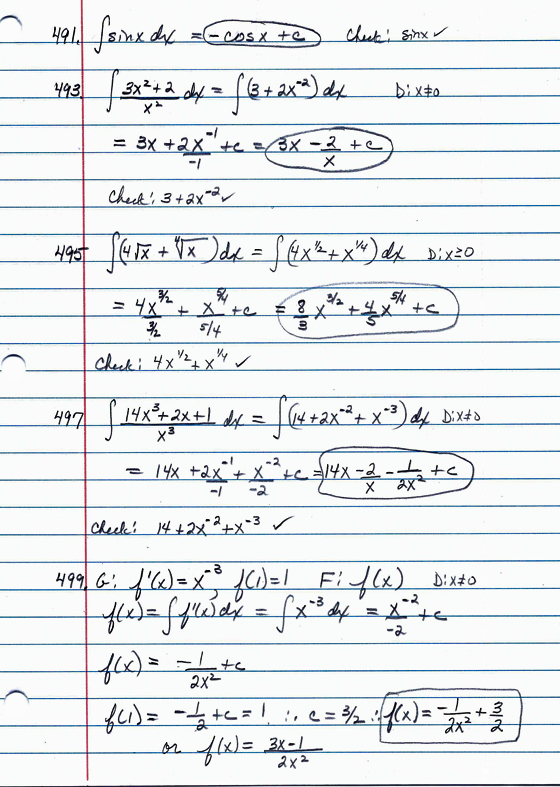 491. ∫sinx dx = -cosx + c Check: sinx ✓
493. ∫ (3x²+2)/x² dx = ∫(3+2x⁻²)dx D:x≠0
= 3x + 2x⁻¹/-1 + c = 3x - 2/x + c
Check: 3+2x⁻² ✓
495 ∫(4√x + ⁴√x)dx = ∫(4x^1/2 + x^1/4)dx D:x≥0
= 4x^3/2/(3/2) + x^5/4/(5/4) + c = 8/3 x^3/2 + 4/5 x^5/4 + c
Check: 4x^1/2 + x^1/4 ✓
497 ∫ (14x³+2x+1)/x³ dx = ∫(14+2x⁻²+x⁻³)dx D:x≠0
= 14x + 2x⁻¹/-1 + x⁻²/-2 + c = 14x - 2/x - 1/2x² + c
Check: 14+2x⁻²+x⁻³ ✓
499. G: f'(x) = x⁻³, f(1)=1 F: f(x) D:x≠0
f(x) = ∫f'(x)dx = ∫x⁻³dx = x⁻²/-2 + c
f(x) = -1/2x² + c
f(1) = -1/2 + c = 1 ∴ c = 3/2 ∴ f(x) = -1/2x² + 3/2
or f(x) = 3x-1/2x²